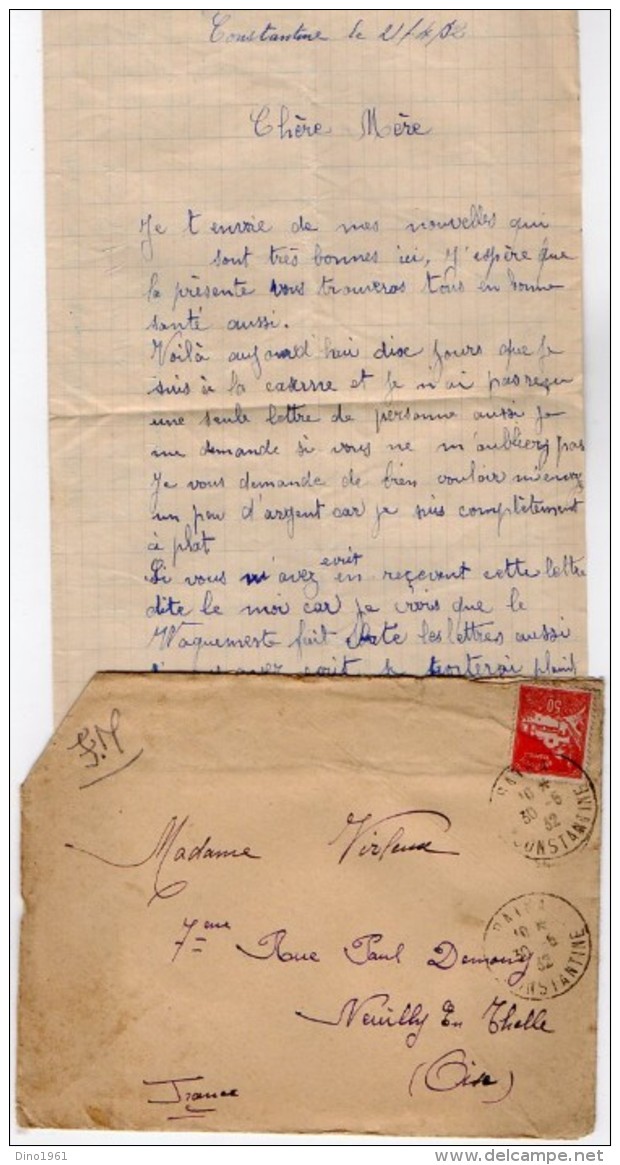 Constantine le 21/4/32
Chère Mère
Je t envoie de mes nouvelles qui
sont très bonnes ici, J'espère que
la présente vous trouveras tous en bonne
santé aussi.
Voilà aujourd'hui dix jours que je
suis à la caserne et je n'ai pas reçu
une seule lettre de personne aussi je
me demande si vous ne m'oubliez pas
Je vous demande de bien vouloir m'envoyez
un peu d'argent car je suis complètement
à plat
Si vous m'avez ecrit en reçevent cette lettre
dite le moi car je crois que le
Waguemestre fait les lettres aussi
avez écrit je porterai plaint
F.M
50
BATNA
16 *
30 -6
32
CONSTANTINE
Madame Virleux
BATNA
16 *
30 -6
32
CONSTANTINE
7eme Rue Paul Demouy
Neuilly En Thelle
(Oise)
France
Dino1961
delcampe.net